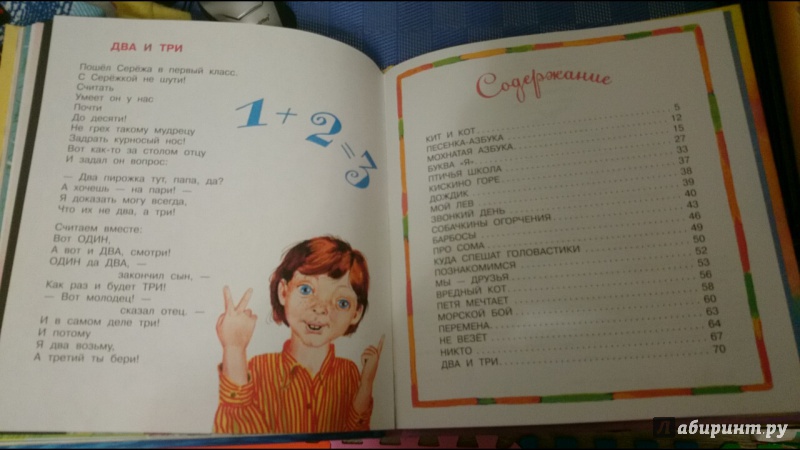 ДВА И ТРИ
Пошёл Серёжа в первый класс.
С Серёжкой не шути!
Считать
Умеет он у нас
Почти
До десяти!
Не грех такому мудрецу
Задрать курносый нос!
Вот как-то за столом отцу
И задал он вопрос:
— Два пирожка тут, папа, да?
А хочешь — на пари! —
Я доказать могу всегда,
Что их не два, а три!
Считаем вместе:
Вот ОДИН,
А вот и ДВА, смотри!
ОДИН да ДВА, —
закончил сын, —
Как раз и будет ТРИ!
— Вот молодец! —
сказал отец. —
И в самом деле три!
И потому
Я два возьму,
А третий ты бери!
1+2=3
Содержание
КИТ И КОТ 5
ПЕСЕНКА-АЗБУКА 12
МОХНАТАЯ АЗБУКА 15
БУКВА «Я» 27
ПТИЧЬЯ ШКОЛА 33
КИСКИНО ГОРЕ 37
ДОЖДИК 38
МОЙ ЛЕВ 39
ЗВОНКИЙ ДЕНЬ 40
СОБАЧКИНЫ ОГОРЧЕНИЯ 43
БАРБОСЫ 46
ПРО СОМА 49
КУДА СПЕШАТ ГОЛОВАСТИКИ 50
ПОЗНАКОМИМСЯ 52
МЫ — ДРУЗЬЯ 53
ВРЕДНЫЙ КОТ 56
ПЕТЯ МЕЧТАЕТ 58
МОРСКОЙ БОЙ 60
ПЕРЕМЕНА 63
НЕ ВЕЗЁТ 64
НИКТО 67
ДВА И ТРИ 70
Лабиринт.ру